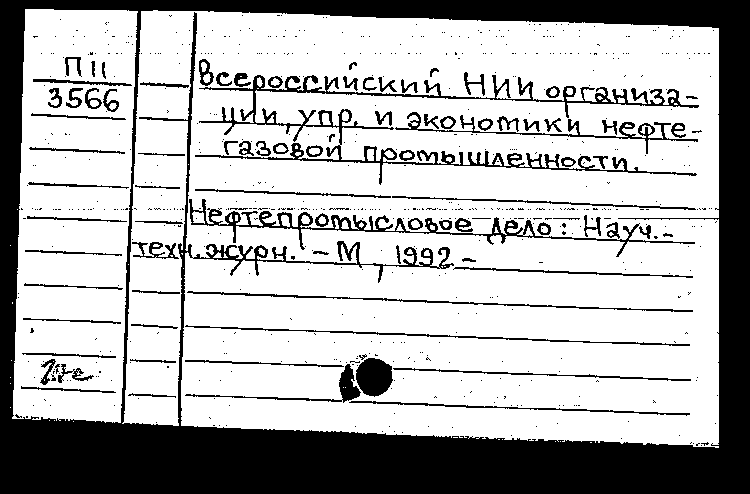 П11
3566
Всероссийский НИИ организа-
ции, упр. и экономики нефте-
газовой промышленности.
Нефтепромысловое дело: Науч.-
техн. журн. - М, 1992 -